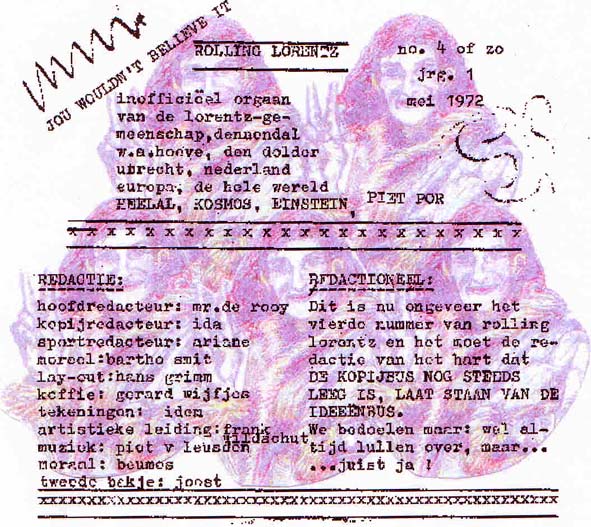 JOU WOULDN'T BELIEVE IT
ROLLING LORENTZ
no. 4 of zo
jrg. 1
mei 1972
inofficiëel orgaan
van de lorentz-ge-
meenschap,dennendal
w.a.hoeve, den dolder
utrecht, nederland
europa, de hele wereld
HEELAL, KOSMOS, EINSTEIN, PIET POR
x x x x x x x x x x x x x x x x x x x x x x x x
REDACTIE:
hoofdredacteur: mr.de rooy
kopijredacteur: ida
sportredacteur: ariane
moreel:bartho smit
lay-out:hans grimm
koffie: gerard wijfjes
tekeningen: idem
artistieke leiding:frank wildschut
muziek: piet v leusden
moraal: beumes
tweede bekje: joost
REDACTIONEEL:
Dit is nu ongeveer het
vierde nummer van rolling
lorentz en het moet de re-
dactie van het hart dat
DE KOPIJBUS NOG STEEDS
LEEG IS, LAAT STAAN VAN DE
IDEEËNBUS.
We bedoelen maar: wel al-
tijd lullen over, maar...
...juist ja !
xxxxxxxxxxxxxxxxxxxxxxxxxxxxxxxxxxxxxxxxxxxxxxxxxxxxxx